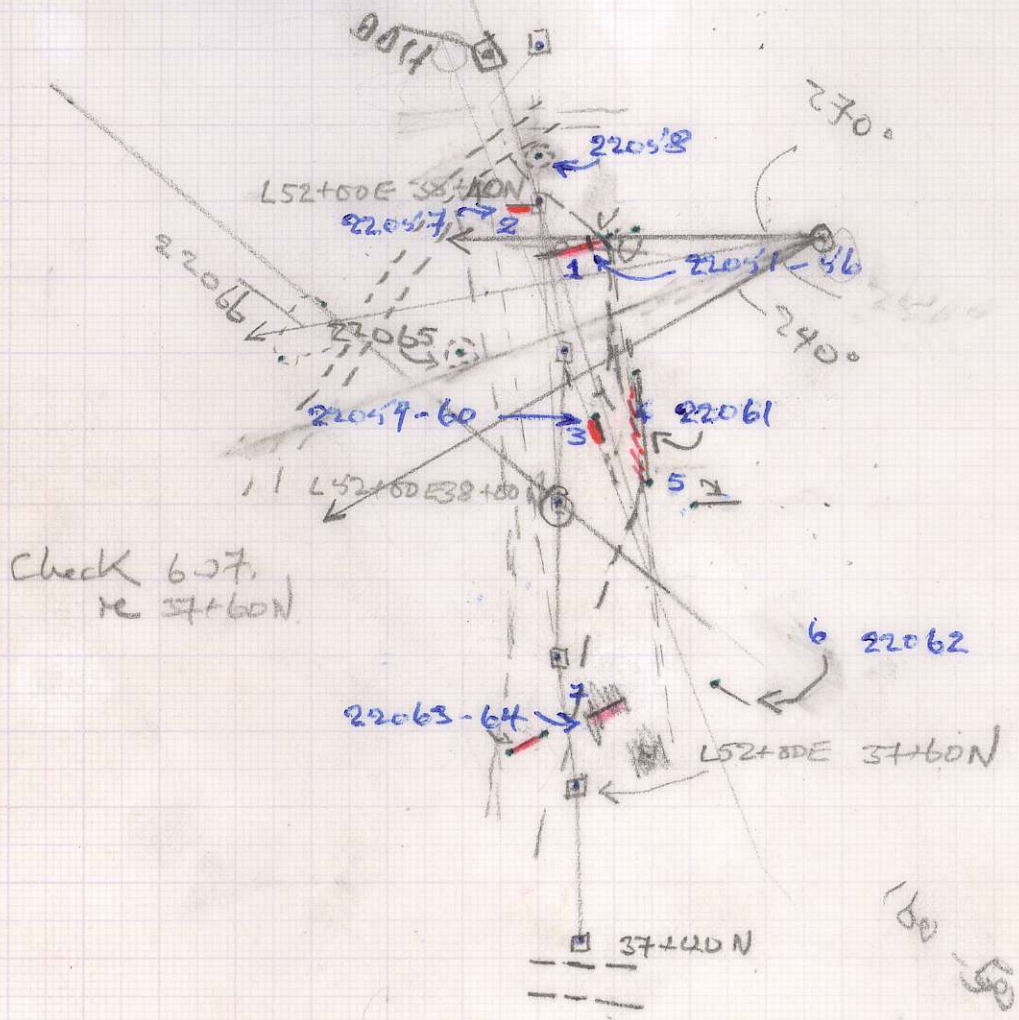 270°
22058
L52+00E 38+40N
22057
2
1
22051-56
22066
22065
240°
22059-60
3
22061
L52+00E 38+00N
5
Check 607.
re 37+60N
6
22062
7
22063-64
L52+00E 37+60N
37+40N